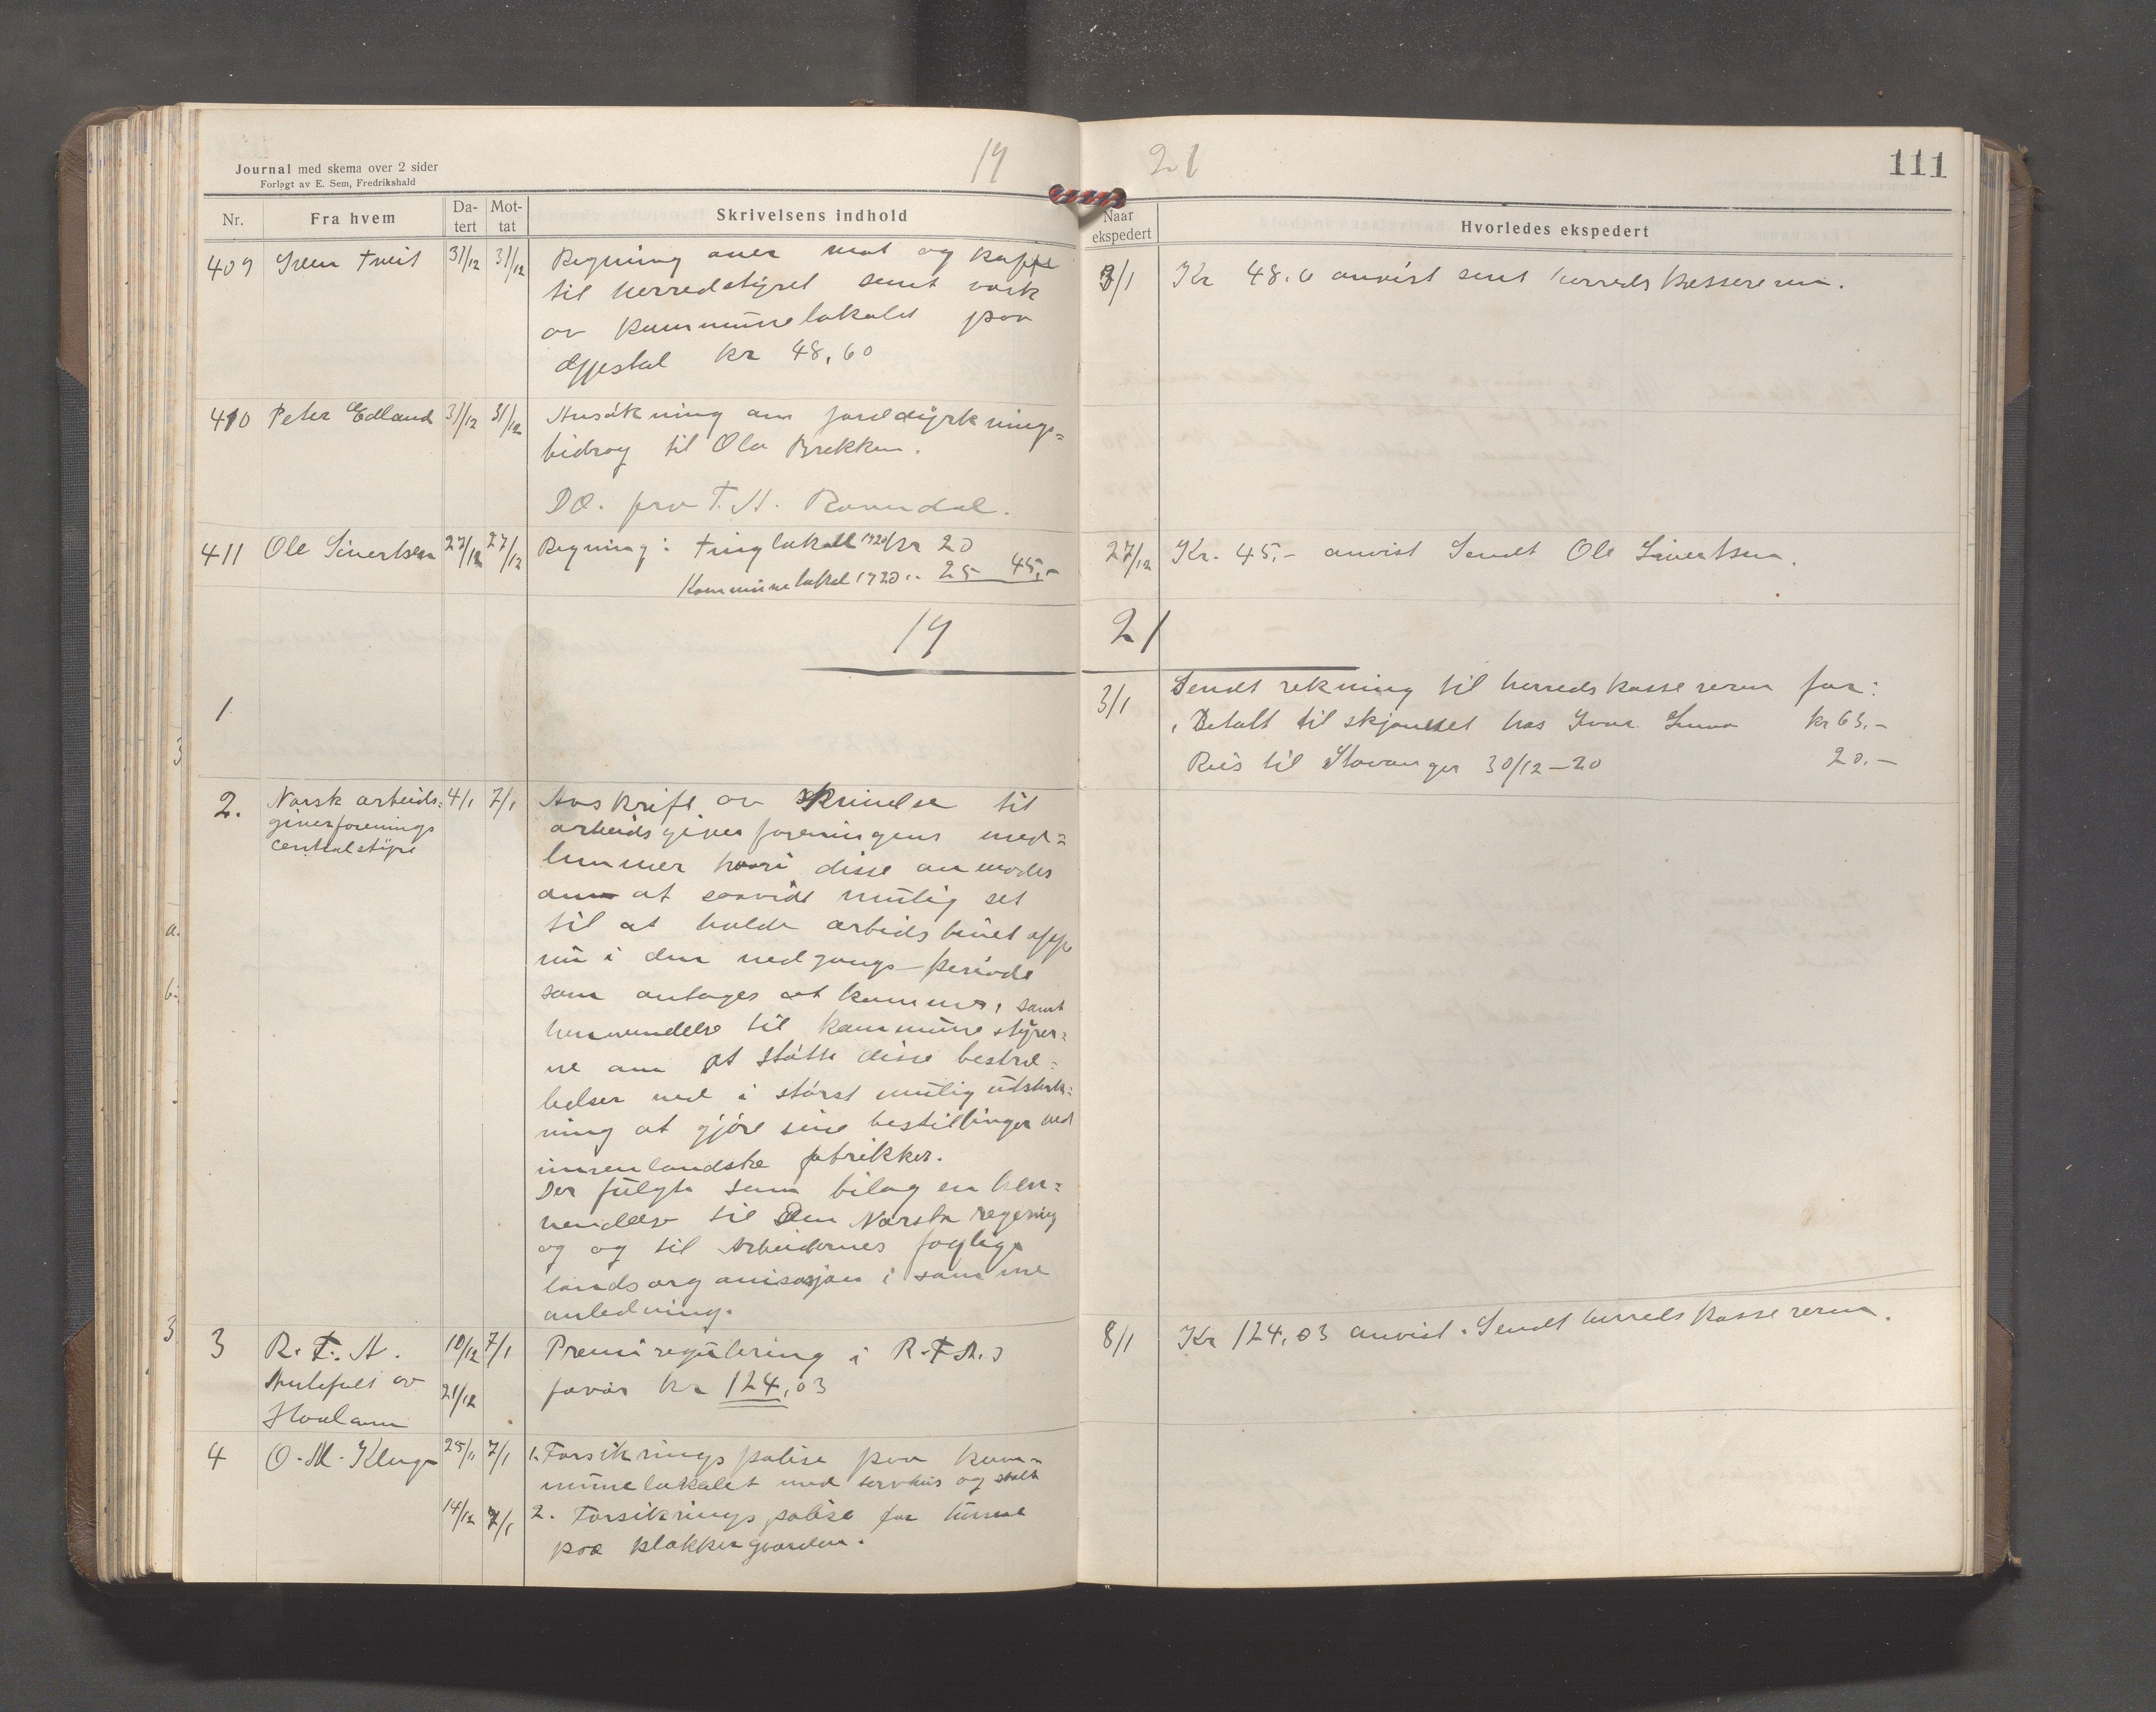 19 21
111
Journal med skema over 2 sider
Forlagt av E. Sem, Fredrikshald
Nr. Fra hvem Da-tert Mot-tat Skrivelsens indhold Naar ekspedert Hvorledes ekspedert
409 Sven Tveit 31/12 31/12 Regning over mat og kaffe
til herredstyret samt vask
av kommunelokalet paa
Ølgjestøl kr 48,60
3/1 Kr 48.60 anvist sent herredskassereren.
410 Peter Edland 31/12 31/12 Ansökning om jorddyrknings=
bidrag til Ola Brekken.
DO. fra T. H. Ravndal.
411 Ole Sivertsen 27/12 27/12 Regning: Tinglokale 1920 kr 20
Kommunelokal 1920 " 25 45,-
27/12 Kr. 45,- anvist Sendt Ole Sivertsen.
19 21
1. 3/1 Sendt rekning til herredskassereren for:
Betalt til skjønnet hos Ivar kr 63.-
Reis til Stavanger 30/12-20 20.-
2. Norsk arbeids=
giverforenings
centralstyre
4/1 7/1 Avskrift av skrivelse til
arbeidsgiverforeningens med=
lemmer hvori disse anmodes
om at saavidt mulig set
til at holde arbeidslivet oppe
nu i den nedgangs-periode
som antages at komme, samt
henvendelse til kommunestyrer=
ne om at støtte disse bestræ=
belser ved i størst mulig utstræk=
ning at gjøre sine bestillinger ved
innenlandske fabrikker.
Der fulgte som bilag en hen=
vendelse til Den Norske regjering
og og til Arbeidernes faglige
landsorganisasjon i samme
anledning.
3 R.T.A. 10/12 7/1 Premiregulering i R.T.A.s
21/12 favør kr 124,03
av
8/1 Kr 124.03 anvist. Sendt herredskassereren.
4 O. M. 25/11 7/1 1. Forsikringspolise paa kom=
munelokalet med og stald
14/12 7/1 2. Forsikringspolise for husene
paa klokkergaarden.